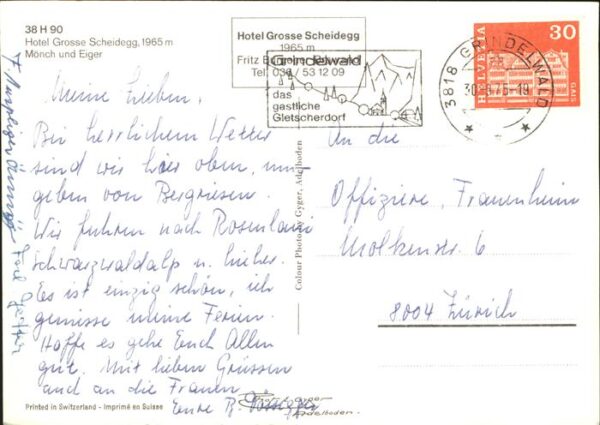 38 H 90
Hotel Grosse Scheidegg, 1965 m
Mönch und Eiger
Hotel Grosse Scheidegg
1965 m
Fritz
Tel. 036 / 53 12 09
Grindelwald
das
gastliche
Gletscherdorf
3818 GRINDELWALD
75-19
HELVETIA
30
GAIS
Meine Lieben,
Bei herrlichem Wetter
sind wir hier oben, um-
geben von Bergriesen.
Wir fuhren nach Rosenlaui
Schwarzwaldalp u. hieher.
Es ist einzig schön, ich
geniesse meine Ferien.
Hoffe es gehe Euch Allen
gut. Mit lieben Grüssen
auch an die Frauen
Eure B.
An die
Offiziere, Frauenheim
Molkenstr. 6
8004 Zürich
Colour Photo by Gyger, Adelboden
Printed in Switzerland - Imprimé en Suisse
Gyger
Adelboden.